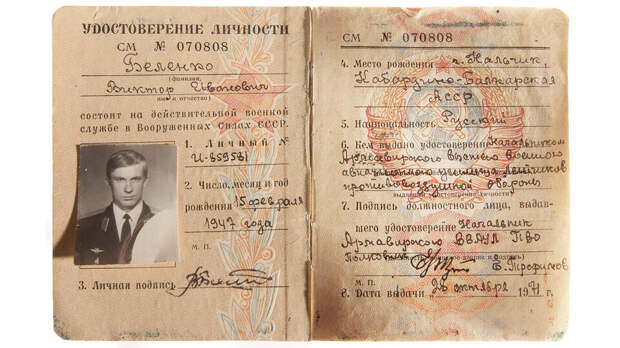 УДОСТОВЕРЕНИЕ ЛИЧНОСТИ
СМ № 070808
Беленко
(фамилия,
Виктор Иванович
имя и отчество)
состоит на действительной военной
службе в Вооруженных Силах СССР.
1. Личный №
2. Число, месяц и год
рождения 15 февраля
1947 года
М. П.
3. Личная подпись
СМ № 070808
4. Место рождения г. Нальчик,
Кабардино-Балкарская
АССР
5. Национальность Русский
6. Кем выдано удостоверение Начальником
Армавирского высшего военного
авиационного училища летчиков
противовоздушной обороны
7. Подпись должностного лица, выдав-
шего удостоверение Начальник
Армавирского ВВАУЛ ПВО
полковник Б. Трофимов
М. П.
8. Дата выдачи 26 октября 1971 г.